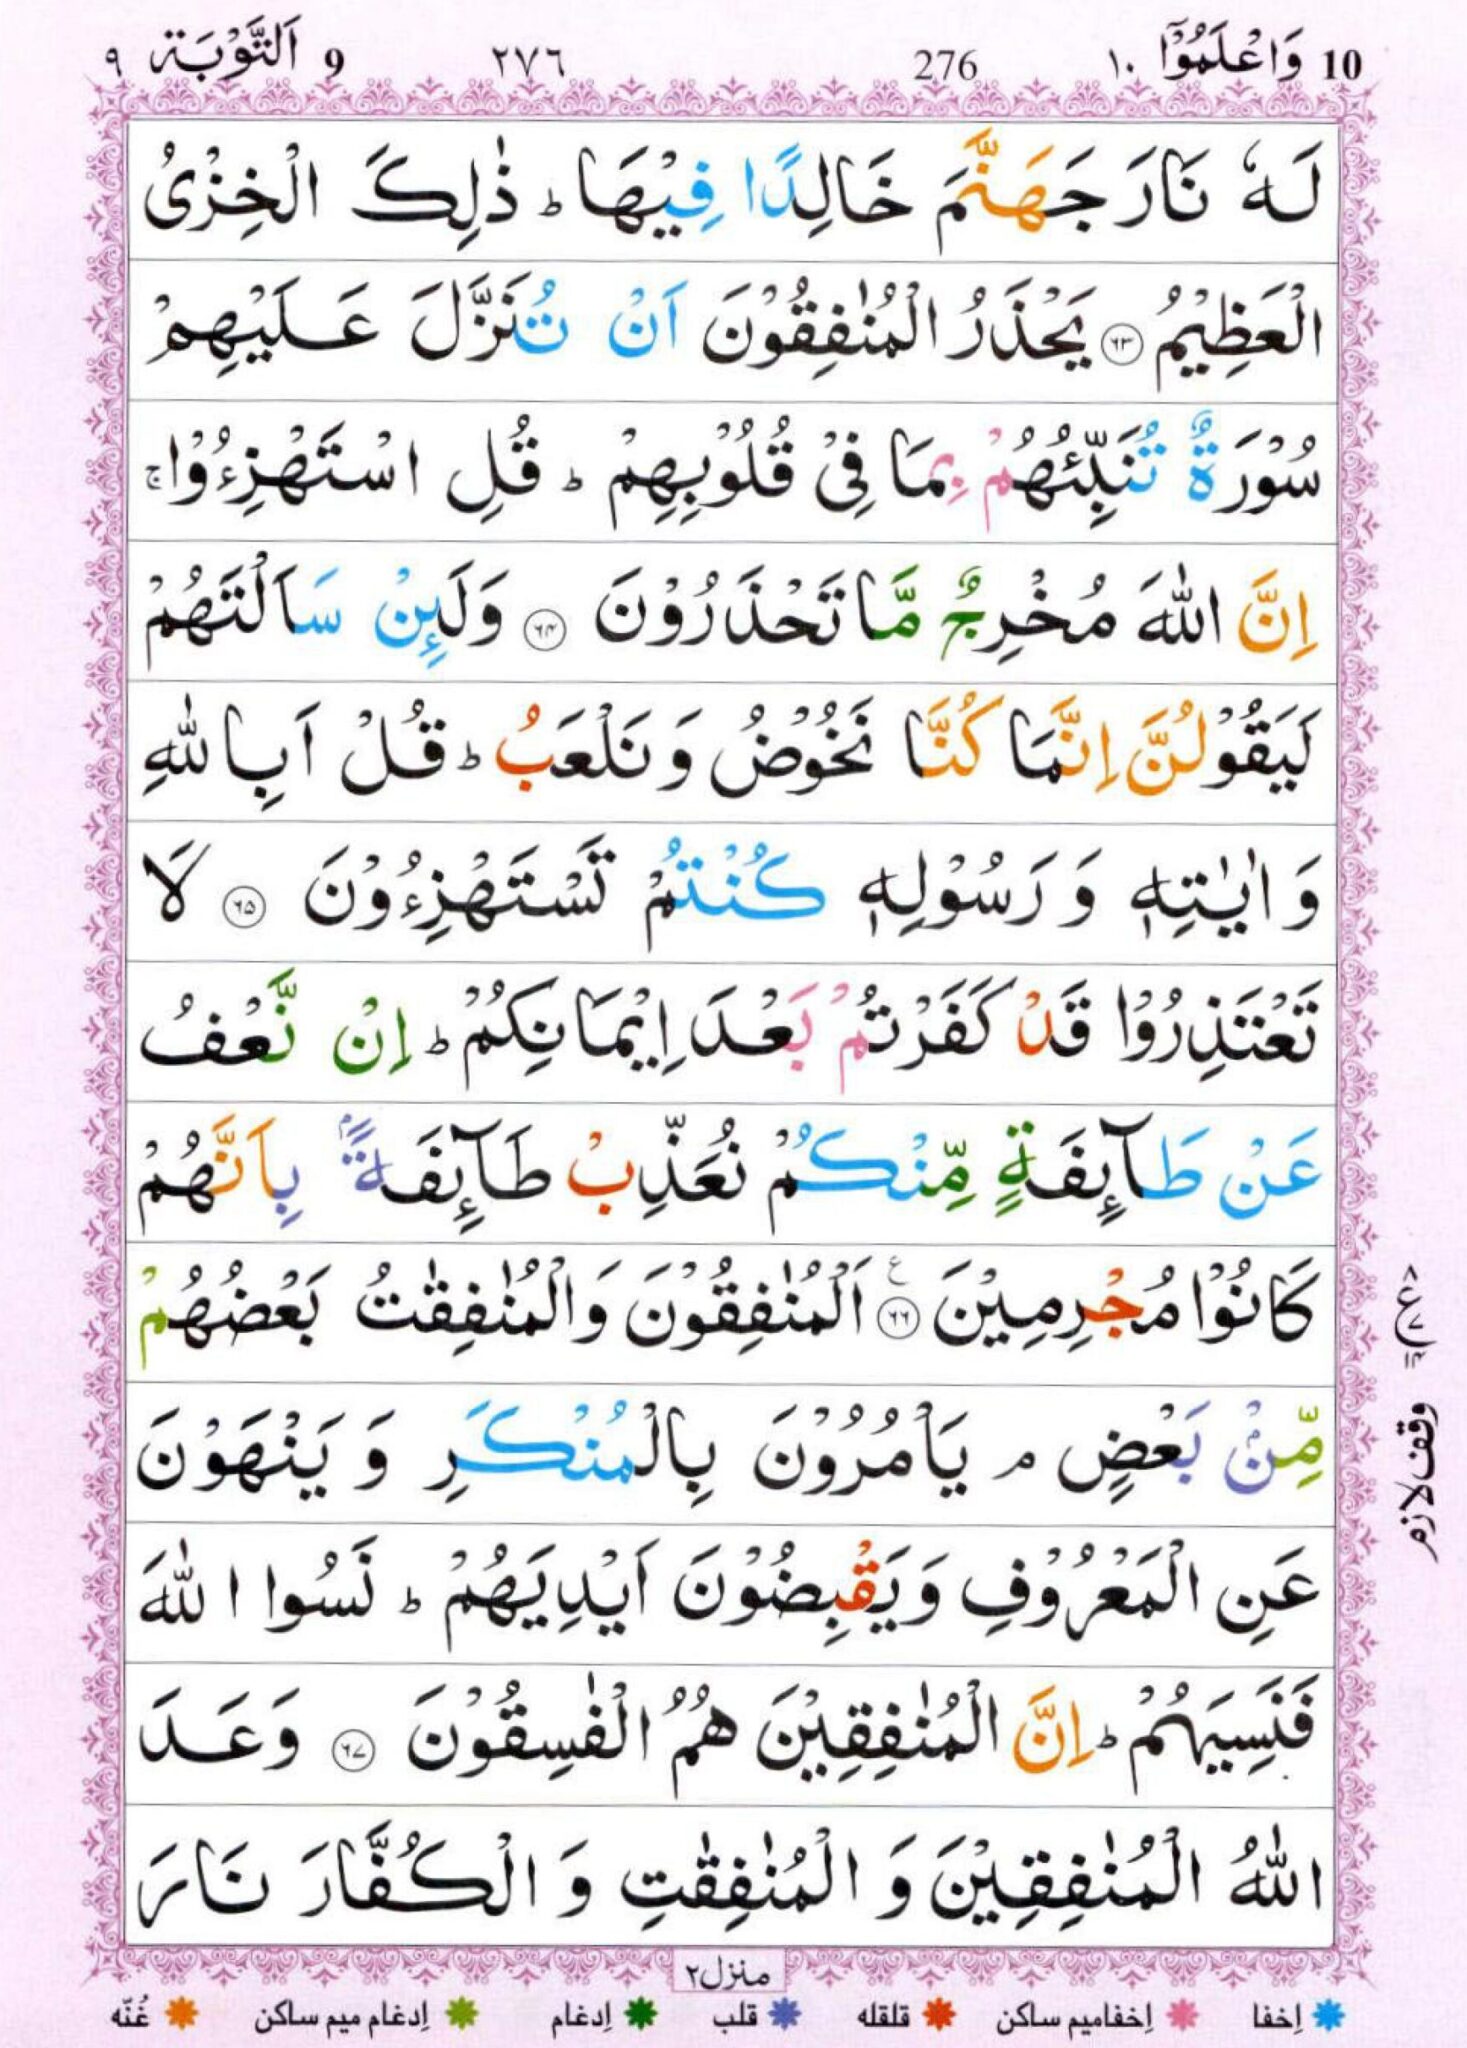 10 وَاعْلَمُوْۤا ١٠ 276 ٢٧٦ 9 اَلتَّوْبَة ٩
لَهٗ نَارَ جَهَنَّمَ خَالِدًا فِيْهَا ؕ ذٰلِكَ الْخِزْیُ
الْعَظِيْمُ ﴿۶۳﴾ يَحْذَرُ الْمُنٰفِقُوْنَ اَنْ تُنَزَّلَ عَلَيْهِمْ
سُوْرَةٌ تُنَبِّئُهُمْ بِمَا فِیْ قُلُوْبِهِمْ ؕ قُلِ اسْتَهْزِءُوْا ۚ
اِنَّ اللّٰهَ مُخْرِجٌ مَّا تَحْذَرُوْنَ ﴿۶۴﴾ وَلَئِنْ سَاَلْتَهُمْ
لَيَقُوْلُنَّ اِنَّمَا كُنَّا نَخُوْضُ وَنَلْعَبُ ؕ قُلْ اَبِاللّٰهِ
وَاٰيٰتِهٖ وَرَسُوْلِهٖ كُنْتُمْ تَسْتَهْزِءُوْنَ ﴿۶۵﴾ لَا
تَعْتَذِرُوْا قَدْ كَفَرْتُمْ بَعْدَ اِيْمَانِكُمْ ؕ اِنْ نَّعْفُ
عَنْ طَآئِفَةٍ مِّنْكُمْ نُعَذِّبْ طَآئِفَةًۢ بِاَنَّهُمْ
كَانُوْا مُجْرِمِيْنَ ﴿۶۶﴾ ع اَلْمُنٰفِقُوْنَ وَالْمُنٰفِقٰتُ بَعْضُهُمْ
مِّنْۢ بَعْضٍ ۘ يَاْمُرُوْنَ بِالْمُنْكَرِ وَيَنْهَوْنَ
عَنِ الْمَعْرُوْفِ وَيَقْبِضُوْنَ اَيْدِيَهُمْ ؕ نَسُوا اللّٰهَ
فَنَسِيَهُمْ ؕ اِنَّ الْمُنٰفِقِيْنَ هُمُ الْفٰسِقُوْنَ ﴿۶۷﴾ وَعَدَ
اللّٰهُ الْمُنٰفِقِيْنَ وَالْمُنٰفِقٰتِ وَالْكُفَّارَ نَارَ
وقف لازم
منزل ۲
اِخفا اِخفامیم ساکن قلقله قلب اِدغام اِدغام میم ساکن غُنّه